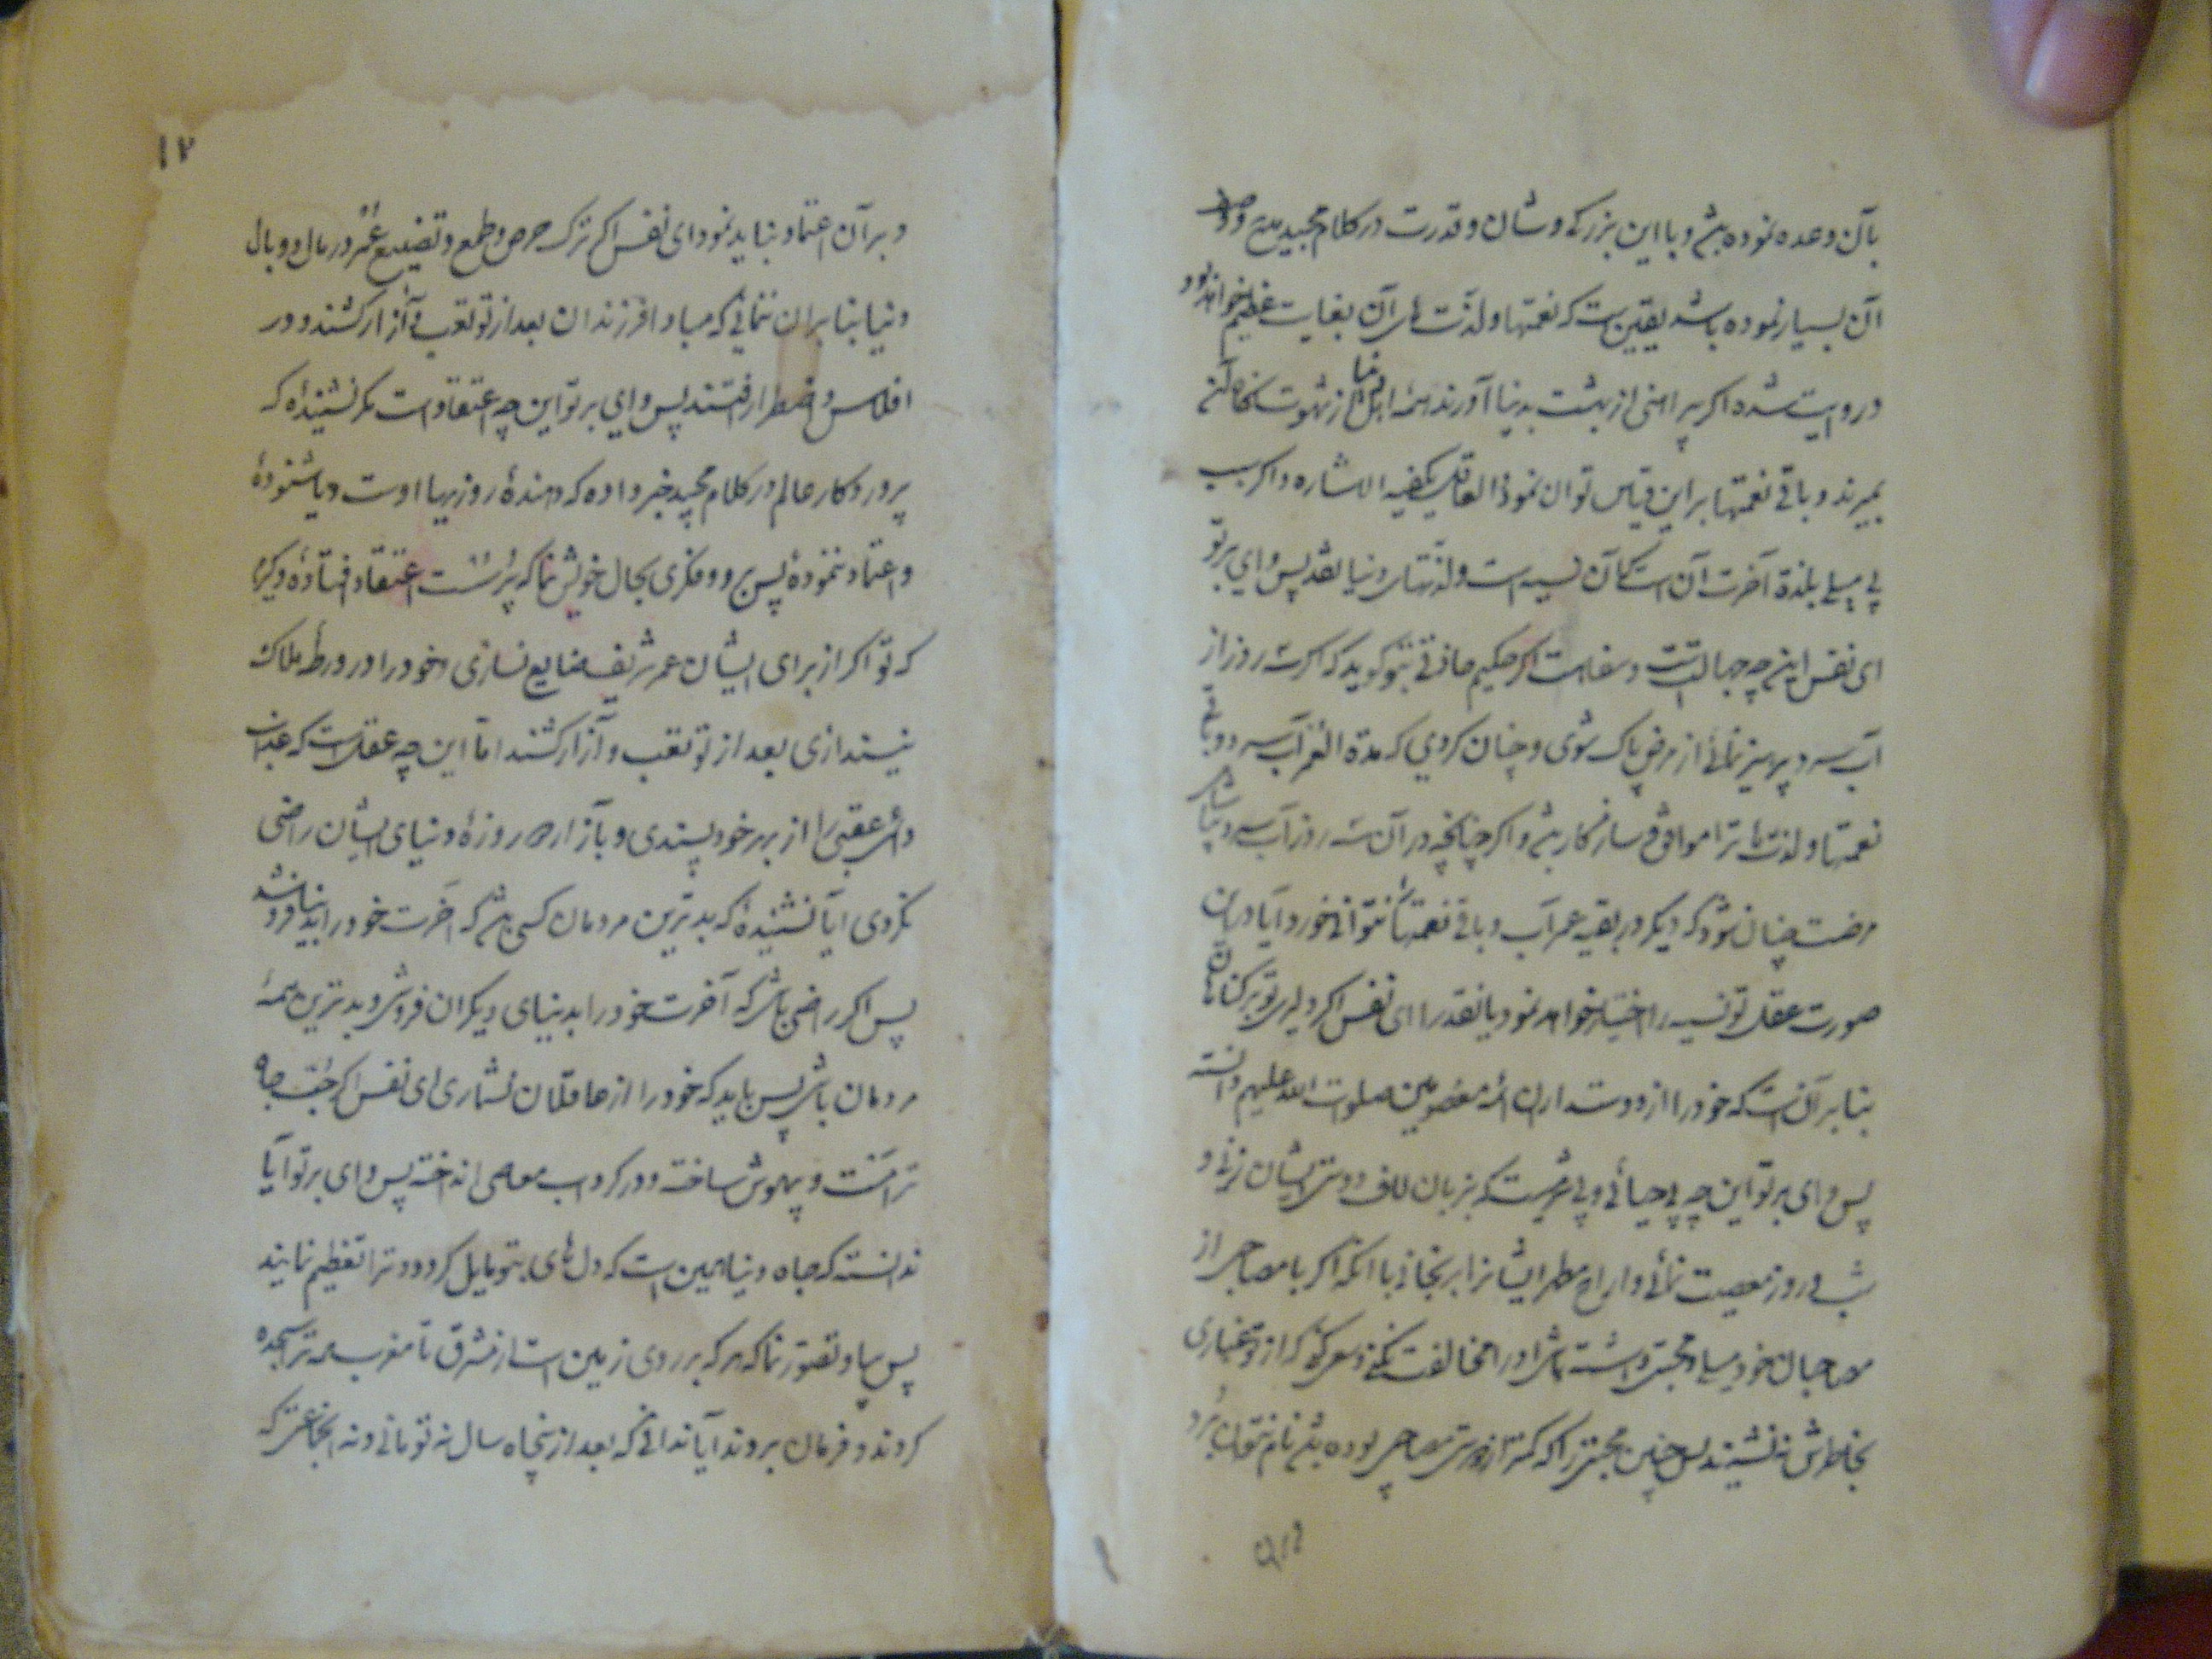 بآن وعده نموده باشد و با این بزرگی و شان و قدرت در کلام مجید مدح و صف
آن بسیار نموده باشد یقین است که نعمتها و لذت های آن بغایت عظیم خواهد بود
در روایت شده اگر پیراهنی از بهشت بدنیا آورند همه اهل دنیا از شهوت نگاه
بمیرند و باقی نعمتها براین قیاس توان نمود العاقل یکفیه الاشاره و اگر سبب
بی میلی بلذة آخرت آن است که آن نسیه است و لذتهای دنیا نقد پس وای بر تو
ای نفس این چه جهالتست و سفاهت اگر حکیم حاذقی بتو گوید که اگر سه روز از
آب سرد پرهیز نمائی از مرض پاک شوی و چنان کردی که مدة العمر آب سرد و باقی
نعمتها و لذت ها ترا موافق و سازگار باشد و اگر چنانچه در آن سه روز آب سرد
مرضت چنان شود که دیگر در بقیه عمر آب و باقی نعمتها نتوانی خورد آیا در این
صورت عقل تو نسیه را اختیار خواهد نمود یا نقد را ای نفس اگر دلیری تو بر گناهان
بنا بر آنست که خود را از دوستداران ائمه معصومین صلوات الله علیهم دانسته
پس وای بر تو این چه بی حیائی و بی شرمیست که بزبان لاف دوستی ایشان زنی و
شب و روز معصیت نمائی و ارواح مطهر ایشانرا برنجانی با آنکه اگر با مصاحبی از
مصاحبان خود محبتی داشته باشی او را مخالفت نکنی و سعی کنی که از تو غباری
بخاطرش ننشیند پس چنین محبتی را که کمتر از دوستی مصاحبی بوده باشد نام نتوان برد
و بر آن
۱۷
و بر آن اعتماد نباید نمود ای نفس اگر ترک حرص و طمع و تضییع عمر در مال و وبال
دنیا بنا بر آن ننمائی که مبادا فرزندان بعد از تو تعب و آزار کشند و در
افلاس و اضطرار افتند پس وای بر تو این چه اعتقاد است مگر نشنیدهٔ که
پروردگار عالم در کلام مجید خبر داده که دهندهٔ روزیها اوست و یا شنودهٔ
و اعتماد ننمودهٔ پس برو و فکری بحال خویش نما که پر سست اعتقاد افتادهٔ دیگر
که تو اگر از برای ایشان عمر شریف ضایع نسازی و خود را در ورطه هلاک
نیندازی بعد از تو تعب و آزار کشند اما این چه عقلست که عذاب
دائمی عقبی را از بهر خود پسندی و بآزار ده روزهٔ دنیای ایشان راضی
نگردی آیا نشنیدهٔ که بدترین مردمان کسی باشد که آخرت خود را بدنیا فروشد
پس اگر راضی باشی که آخرت خود را بدنیای دیگران فروشی و بدترین همهٔ
مردمان باشی پس باید که خود را از عاقلان نشماری ای نفس اگر حب جاه
ترا مست و بیهوش ساخته و در گرداب معاصی انداخته پس وای بر تو آیا
ندانستهٔ که جاه دنیا همین است که دل های بتو مایل گردد و ترا تعظیم نمایند
پس بیا و تصور نما که هر که بر روی زمین است از مشرق تا مغرب همه ترا سجده
کردند و فرمان بردند آیا ندانی که بعد از پنجاه سال نه تو مانی و نه آنجماعتی که